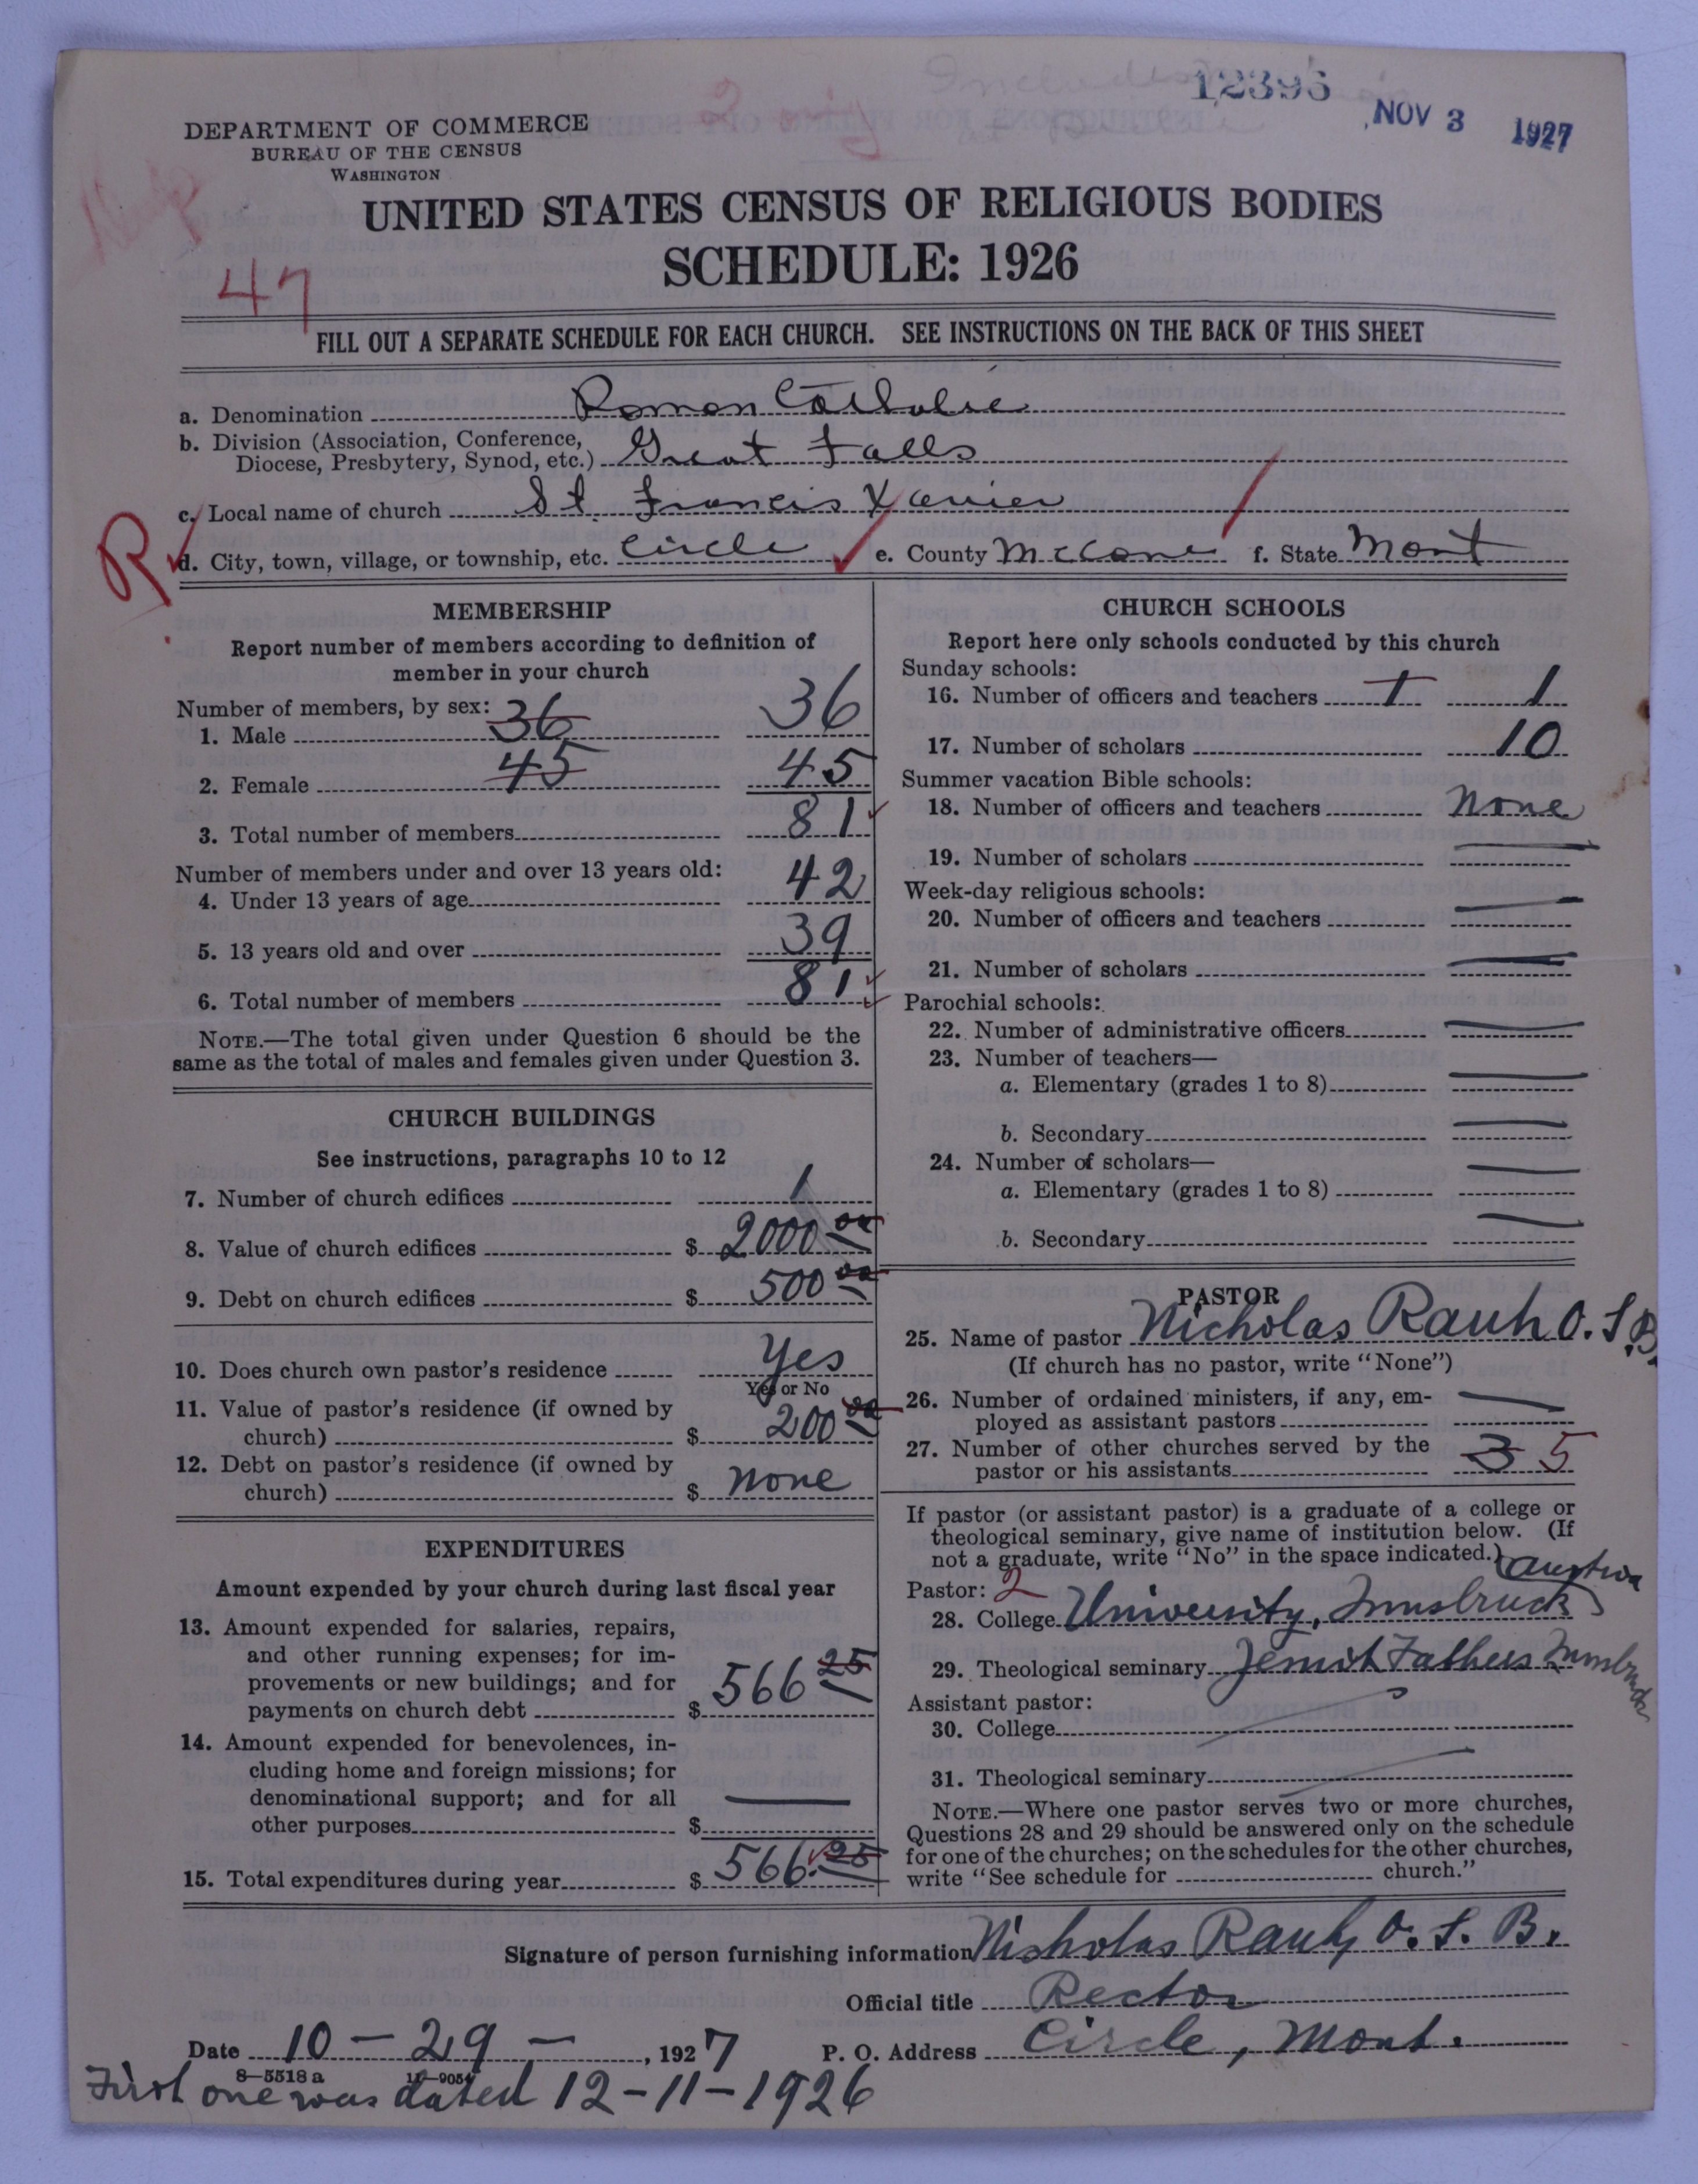 12396
NOV 3 1927
DEPARTMENT OF COMMERCE
BUREAU OF THE CENSUS
WASHINGTON
UNITED STATES CENSUS OF RELIGIOUS BODIES
SCHEDULE: 1926
47
FILL OUT A SEPARATE SCHEDULE FOR EACH CHURCH. SEE INSTRUCTIONS ON THE BACK OF THIS SHEET
a. Denomination Roman Catholic
b. Division (Association, Conference,
Diocese, Presbytery, Synod, etc.) Great Falls
c. Local name of church St. Francis Xavier
R
d. City, town, village, or township, etc. Circle e. County McCone f. State Mont
MEMBERSHIP
Report number of members according to definition of
member in your church
Number of members, by sex:
1. Male 36 36
2. Female 45 45
3. Total number of members 81
Number of members under and over 13 years old:
4. Under 13 years of age 42
5. 13 years old and over 39
6. Total number of members 81
NOTE.—The total given under Question 6 should be the
same as the total of males and females given under Question 3.
CHURCH BUILDINGS
See instructions, paragraphs 10 to 12
7. Number of church edifices 1
8. Value of church edifices $ 2000 00
9. Debt on church edifices $ 500 00
10. Does church own pastor's residence Yes
Yes or No
11. Value of pastor's residence (if owned by
church) $ 200 00
12. Debt on pastor's residence (if owned by
church) $ none
EXPENDITURES
Amount expended by your church during last fiscal year
13. Amount expended for salaries, repairs,
and other running expenses; for im-
provements or new buildings; and for
payments on church debt $ 566 25
14. Amount expended for benevolences, in-
cluding home and foreign missions; for
denominational support; and for all
other purposes $
15. Total expenditures during year $ 566.25
CHURCH SCHOOLS
Report here only schools conducted by this church
Sunday schools:
16. Number of officers and teachers 1 1
17. Number of scholars 10
Summer vacation Bible schools:
18. Number of officers and teachers none
19. Number of scholars
Week-day religious schools:
20. Number of officers and teachers
21. Number of scholars
Parochial schools:
22. Number of administrative officers
23. Number of teachers—
a. Elementary (grades 1 to 8)
b. Secondary
24. Number of scholars—
a. Elementary (grades 1 to 8)
b. Secondary
PASTOR
25. Name of pastor Nicholas Rauh O. S. B.
(If church has no pastor, write "None")
26. Number of ordained ministers, if any, em-
ployed as assistant pastors
27. Number of other churches served by the
pastor or his assistants 3 5
If pastor (or assistant pastor) is a graduate of a college or
theological seminary, give name of institution below. (If
not a graduate, write "No" in the space indicated.)
Pastor: 2 (Austria
28. College University, Innsbruck
29. Theological seminary Jesuit Fathers Innsbruck
Assistant pastor:
30. College
31. Theological seminary
NOTE.—Where one pastor serves two or more churches,
Questions 28 and 29 should be answered only on the schedule
for one of the churches; on the schedules for the other churches,
write "See schedule for church."
Signature of person furnishing information Nicholas Rauh O. S. B.
Official title Rector
Date 10 - 29 -, 1927 P. O. Address Circle, Mont.
8—5518 a
First one was dated 12-11-1926